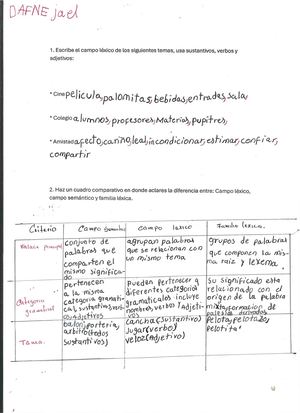 DAFNE jael
1. Escribe el campo léxico de los siguientes temas, usa sustantivos, verbos y
adjetivos:
* Cine película, palomitas, bebidas, entradas, sala,
* Colegio alumnos, profesores, Materias, pupitres,
* Amistad afecto, cariño, leal, incondicional, estimar, confiar,
compartir
2. Haz un cuadro comparativo en donde aclares la diferencia entre: Campo léxico,
campo semántico y familia léxica.
Criterio Campo campo lexico Familia lexica.
conjunto de
palabras que
comparten el
mismo significa-
do
agrupan palabras
que se relacionan con
un mismo tema
grupos de palabras
que componen la mis-
ma raiz y lexema
Categoria
gramatical
pertenecen
a la misma
categoria gramati-
cal, sustantivos, verb-
os, adjetivos
Pueden pertenecer a
diferentes categorias
gramaticales incluye
nombres, verbos y Adjeti-
vos
Su significado esta
relacionado con el
origen de la palabra
mixta, formacion de
palabras
Tema.
balon, porteria,
arbitro (todos
sustantivos)
cancha (sustantivo)
Jugar (verbo)
veloz (Adjetivo)
Pelota, pelotazo,
Pelotita